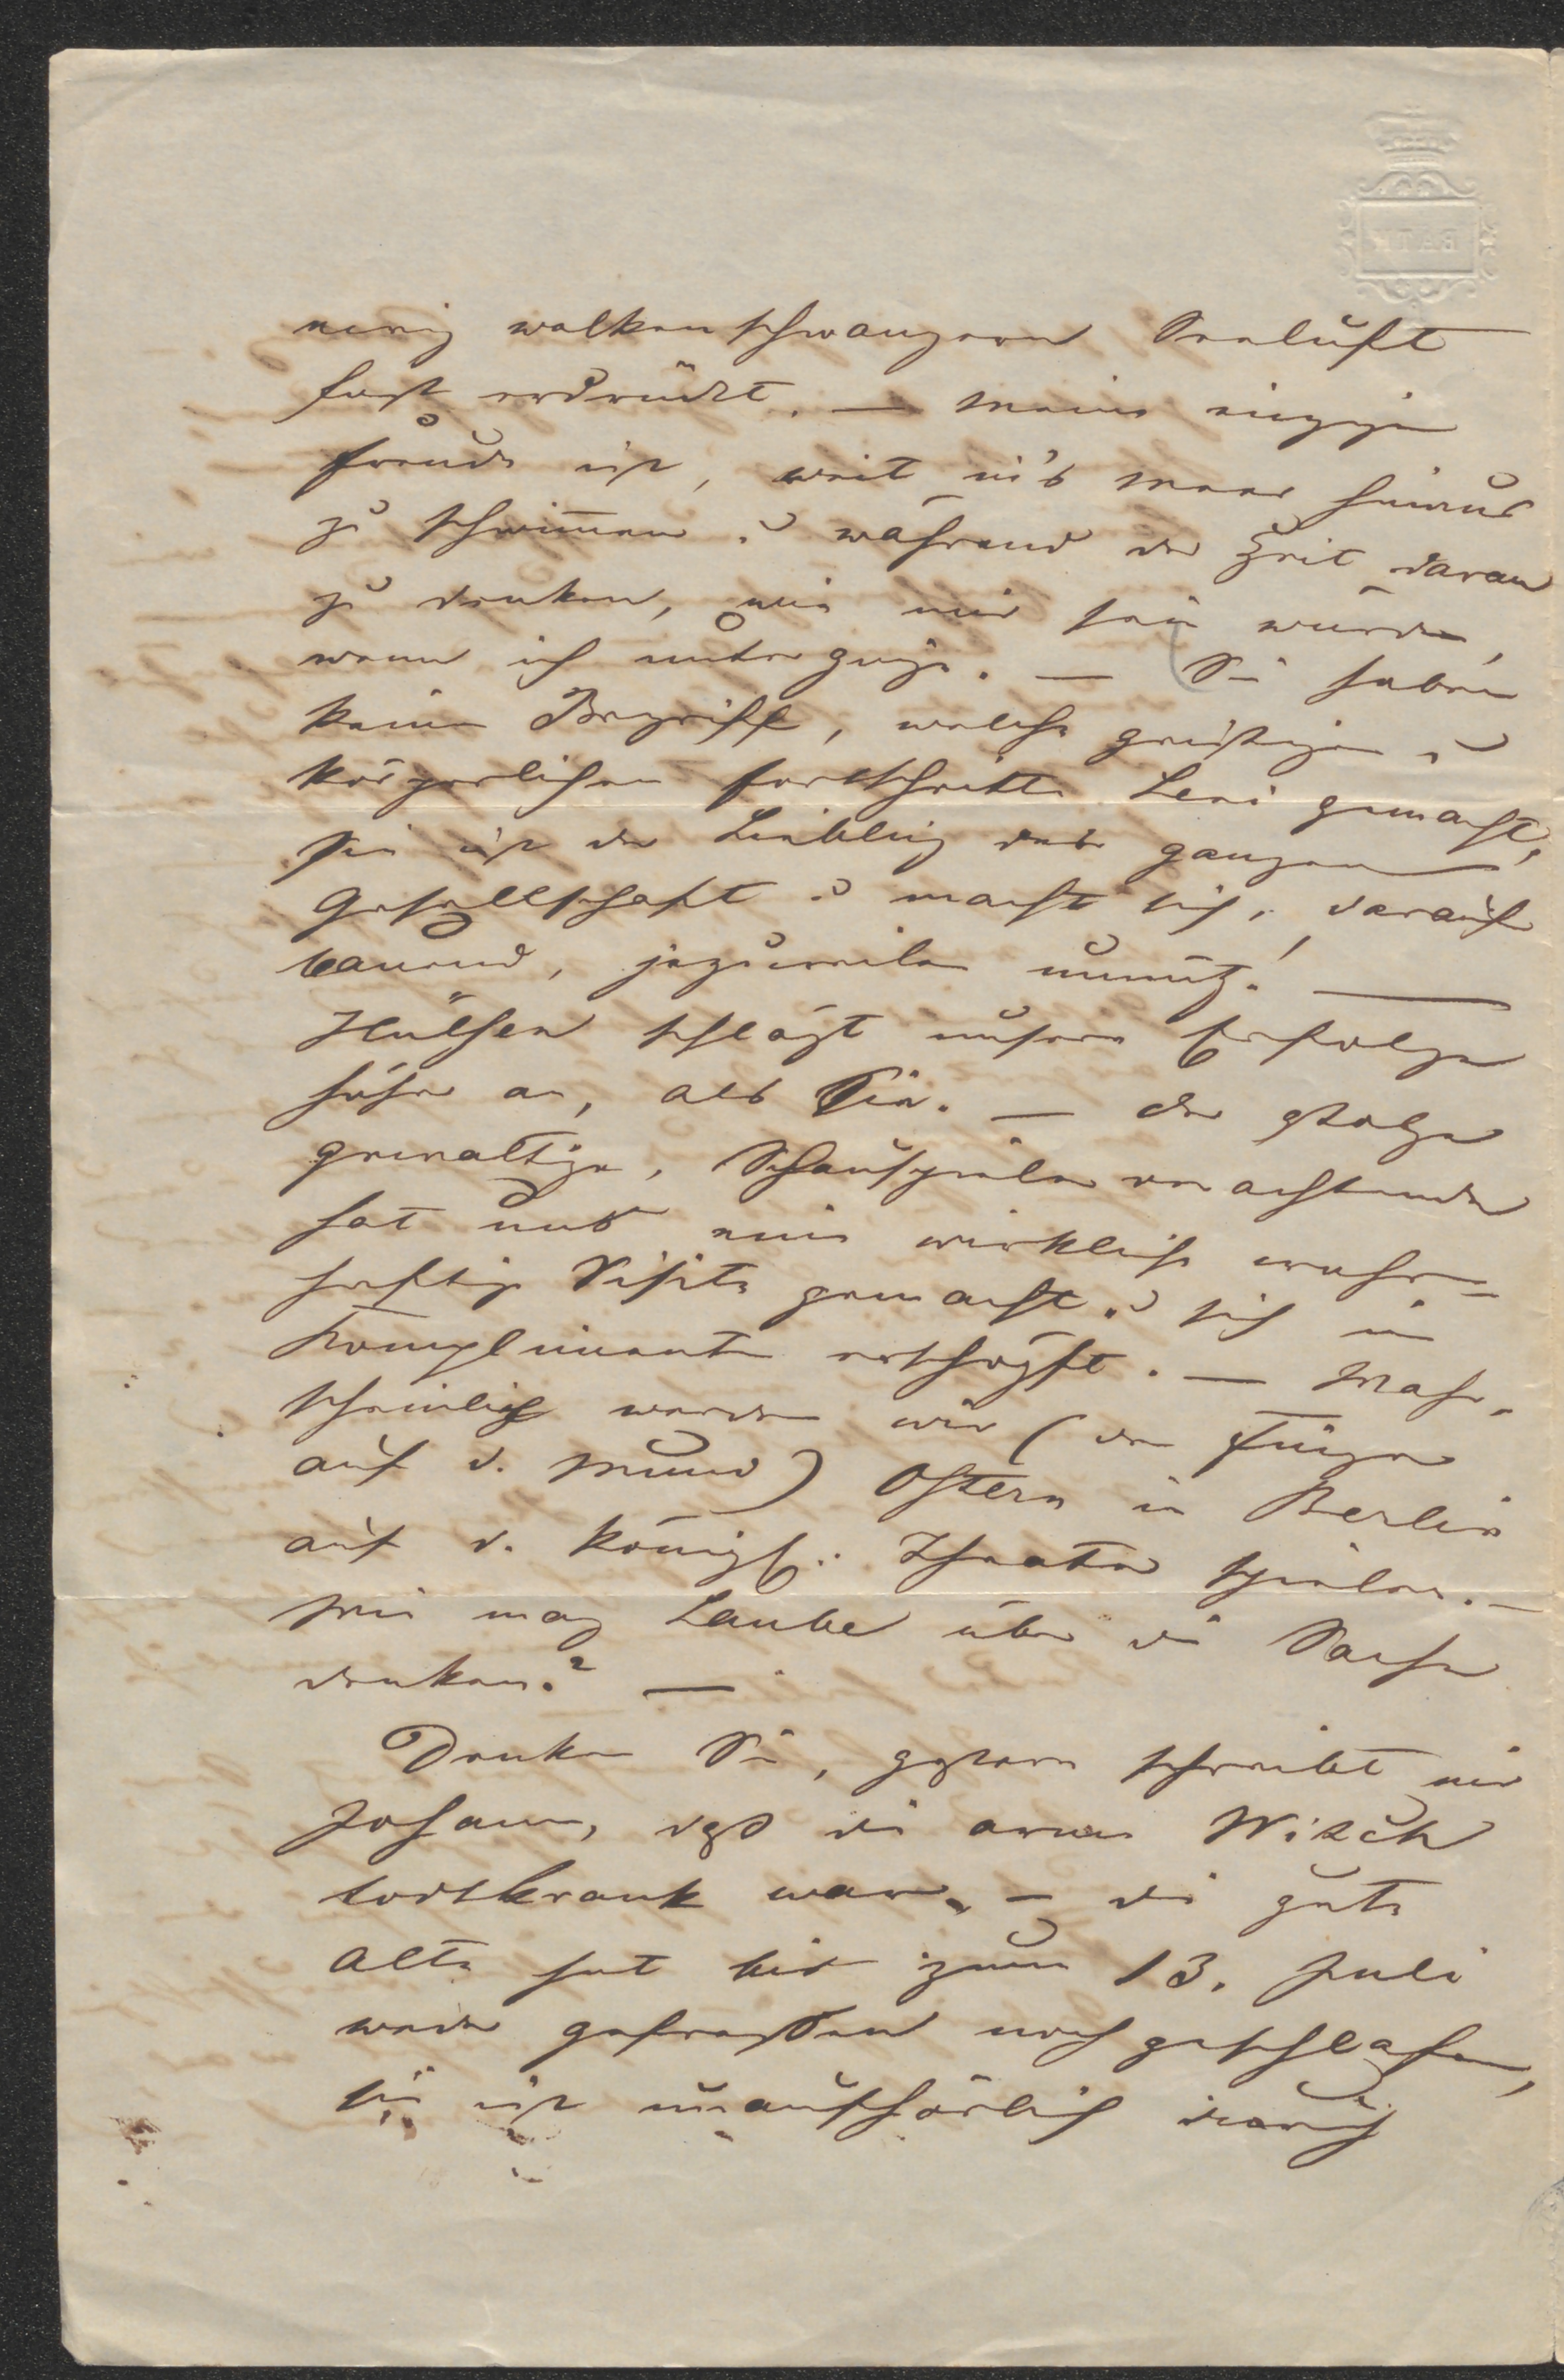 ewig wolkenschwangern Seeluft
fast erdrückt. — Meine einzige
Freude ist, weit in's Meer hinaus
zu schwim̅en u während der Zeit daran
zu denken, wie mir sein würde,
wenn ich unterginge. — Sie haben
keinen Begriff, welche geistigen u
körperlichen Fortschritte Leni gemacht,
sie ist der Liebling der ganzen
Gesellschaft u macht sich, darauf
bauend, jezuweilen unnütz! —
Hülsen schlägt unsere Erfolge
höher an, als Sie. — Der stolze
gewaltige, Schauspieler verachtende
hat uns eine wirkliche wahr-
haftige Visite gemacht u sich in
Komplimenten erschöpft. — Wahr-
scheinlich werden wir (den Finger
auf d. Mund) Ostern in Berlin
auf d. königl: Theater spielen. —
Wie mag Laube über die Sache
denken? —
Denken Sie, gestern schreibt mir
Johann, daß die arme Witsch
todtkrank war, – die gute
Alte hat bis zum 13. Juli
weder gefressen noch geschlafen,
sie ist unaufhörlich durch